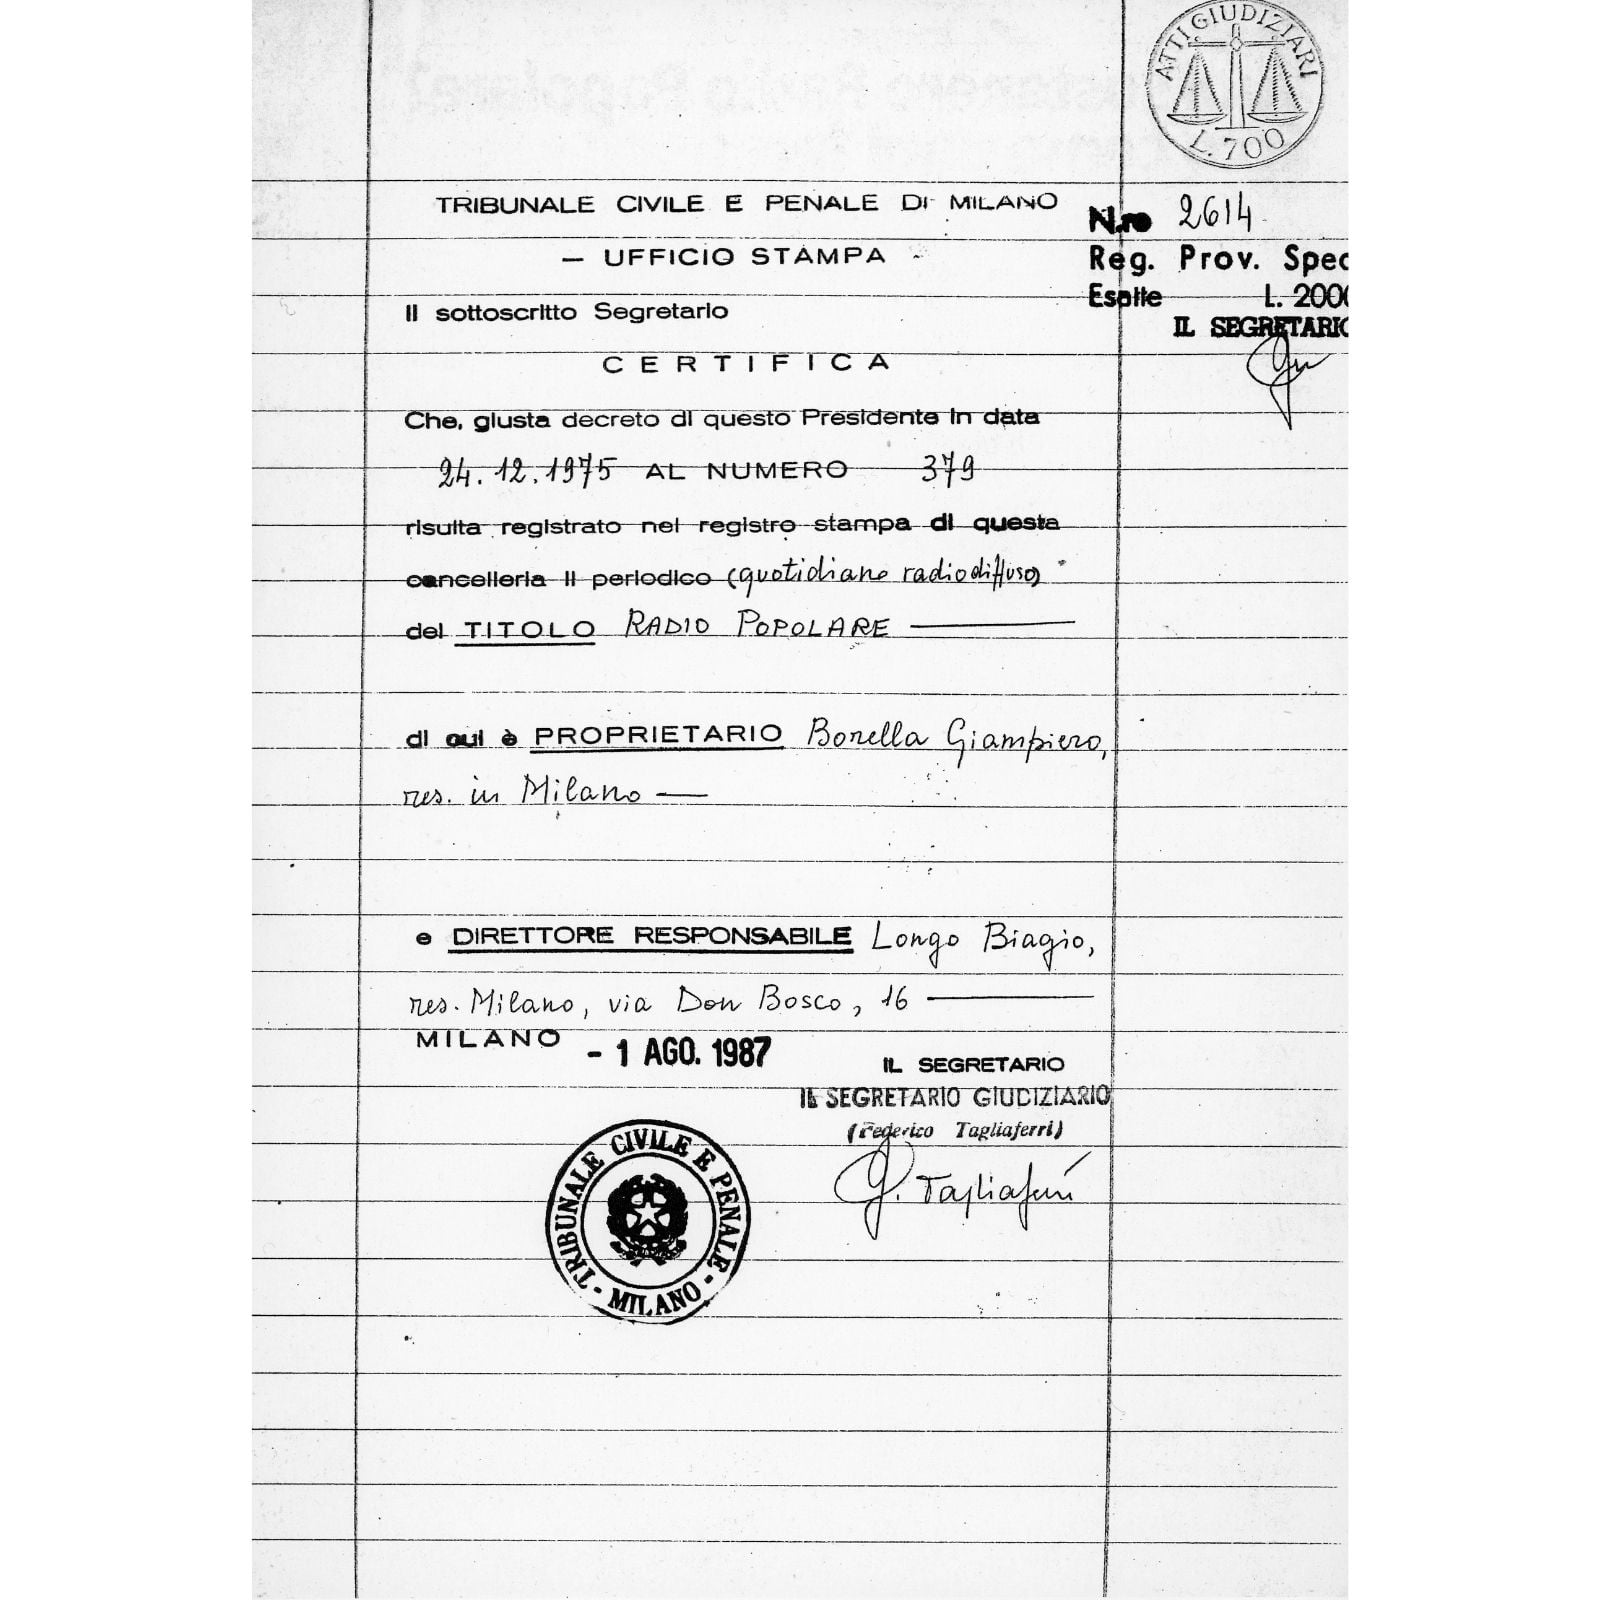 ATTI GIUDIZIARI
L. 700
TRIBUNALE CIVILE E PENALE DI MILANO
N.ro 2614
— UFFICIO STAMPA
Reg. Prov. Spec
Esatte L. 2000
Il sottoscritto Segretario
IL SEGRETARIO
CERTIFICA
Che, giusta decreto di questo Presidente in data
24.12.1975 AL NUMERO 379
risulta registrato nel registro stampa di questa
cancelleria il periodico (quotidiano radiodiffuso)
del TITOLO RADIO POPOLARE —
di cui è PROPRIETARIO Borella Giampiero,
res. in Milano —
e DIRETTORE RESPONSABILE Longo Biagio,
res. Milano, via Don Bosco, 16 —
MILANO - 1 AGO. 1987
IL SEGRETARIO
IL SEGRETARIO GIUDIZIARIO
(Federico Tagliaferri)
F. Tagliaferri
TRIBUNALE CIVILE E PENALE - MILANO -